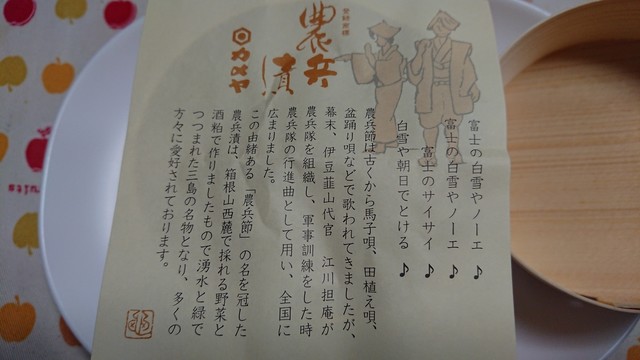 富士の白雪やノーエ♪
富士の白雪やノーエ♪
富士のサイサイ♪
白雪や朝日でとける♪
農兵節は古くから馬子唄、田植え唄、
盆踊り唄などで歌われてきましたが、
幕末、伊豆韮山代官 江川担庵が
農兵隊を組織し、軍事訓練をした時
農兵隊の行進曲として用い、全国に
広まりました。
この由緒ある「農兵節」の名を冠した
農兵漬は、箱根山西麓で採れる野菜と
酒粕で作りましたもので湧水と緑で
つつまれた三島の名物となり、多くの
方々に愛好されております。
登録商標
農兵漬
カメヤ